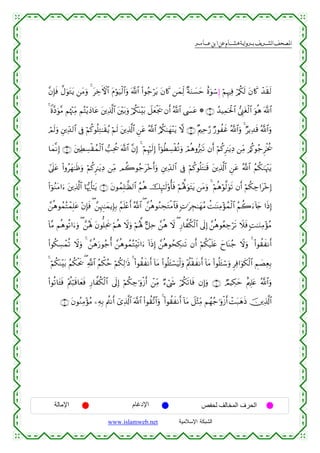 المصحف الشريف برواية هشام عن ابن عامر
لَقَدْ كَانَ لَكُمْ فِيهِمْ إِسْوَةٌ حَسَنَةٌ لِّمَن كَانَ يَرْجُواْ اللَّهَ وَالْيَوْمَ الْآخِرَ وَمَن يَتَوَلَّ فَإِنَّ
اللَّهَ هُوَ الْغَنِيُّ الْحَمِيدُ ۝ عَسَى اللَّهُ أَن يَجْعَلَ بَيْنَكُمْ وَبَيْنَ الَّذِينَ عَادَيْتُم مِّنْهُم مَّوَدَّةً
وَاللَّهُ قَدِيرٌ وَاللَّهُ غَفُورٌ رَّحِيمٌ ۝ لَّا يَنْهَاكُمُ اللَّهُ عَنِ الَّذِينَ لَمْ يُقَاتِلُوكُمْ فِي الدِّينِ وَلَمْ
يُخْرِجُوكُم مِّن دِيَارِكُمْ أَن تَبَرُّوهُمْ وَتُقْسِطُواْ إِلَيْهِمْ إِنَّ اللَّهَ يُحِبُّ الْمُقْسِطِينَ ۝ إِنَّمَا
يَنْهَاكُمُ اللَّهُ عَنِ الَّذِينَ قَاتَلُوكُمْ فِي الدِّينِ وَأَخْرَجُوكُم مِّن دِيَارِكُمْ وَظَاهَرُواْ عَلَى
إِخْرَاجِكُمْ أَن تَوَلَّوْهُمْ وَمَن يَتَوَلَّهُمْ فَأُوْلَئِكَ هُمُ الظَّالِمُونَ ۝ يَا أَيُّهَا الَّذِينَ ءَامَنُواْ
إِذَا جَاءَكُمُ الْمُؤْمِنَاتُ مُهَاجِرَاتٍ فَامْتَحِنُوهُنَّ اللَّهُ أَعْلَمُ بِإِيمَانِهِنَّ فَإِنْ عَلِمْتُمُوهُنَّ
مُؤْمِنَاتٍ فَلَا تَرْجِعُوهُنَّ إِلَى الْكُفَّارِ لَا هُنَّ حِلٌّ لَّهُمْ وَلَا هُمْ يَحِلُّونَ لَهُنَّ وَءَاتُوهُم مَّا
أَنفَقُواْ وَلَا جُنَاحَ عَلَيْكُمْ أَن تَنكِحُوهُنَّ إِذَا ءَاتَيْتُمُوهُنَّ أُجُورَهُنَّ وَلَا تُمْسِكُواْ
بِعِصَمِ الْكَوَافِرِ وَسْئَلُواْ مَا أَنفَقْتُمْ وَلْيَسْئَلُواْ مَا أَنفَقُواْ ذَلِكُمْ حُكْمُ اللَّهِ يَحْكُمُ بَيْنَكُمْ
وَاللَّهُ عَلِيمٌ حَكِيمٌ ۝ وَإِن فَاتَكُمْ شَيْءٌ مِّنْ أَزْوَاجِكُمْ إِلَى الْكُفَّارِ فَعَاقَبْتُمْ فَئَاتُواْ
الَّذِينَ ذَهَبَتْ أَزْوَاجُهُم مِّثْلَ مَا أَنفَقُواْ وَاتَّقُواْ اللَّهَ الَّذِي أَنتُم بِهِ مُؤْمِنُونَ ۝
الحرف المخالف لحفص
الإدغام
الإمالة
الشبكة الإسلامية www.islamweb.net